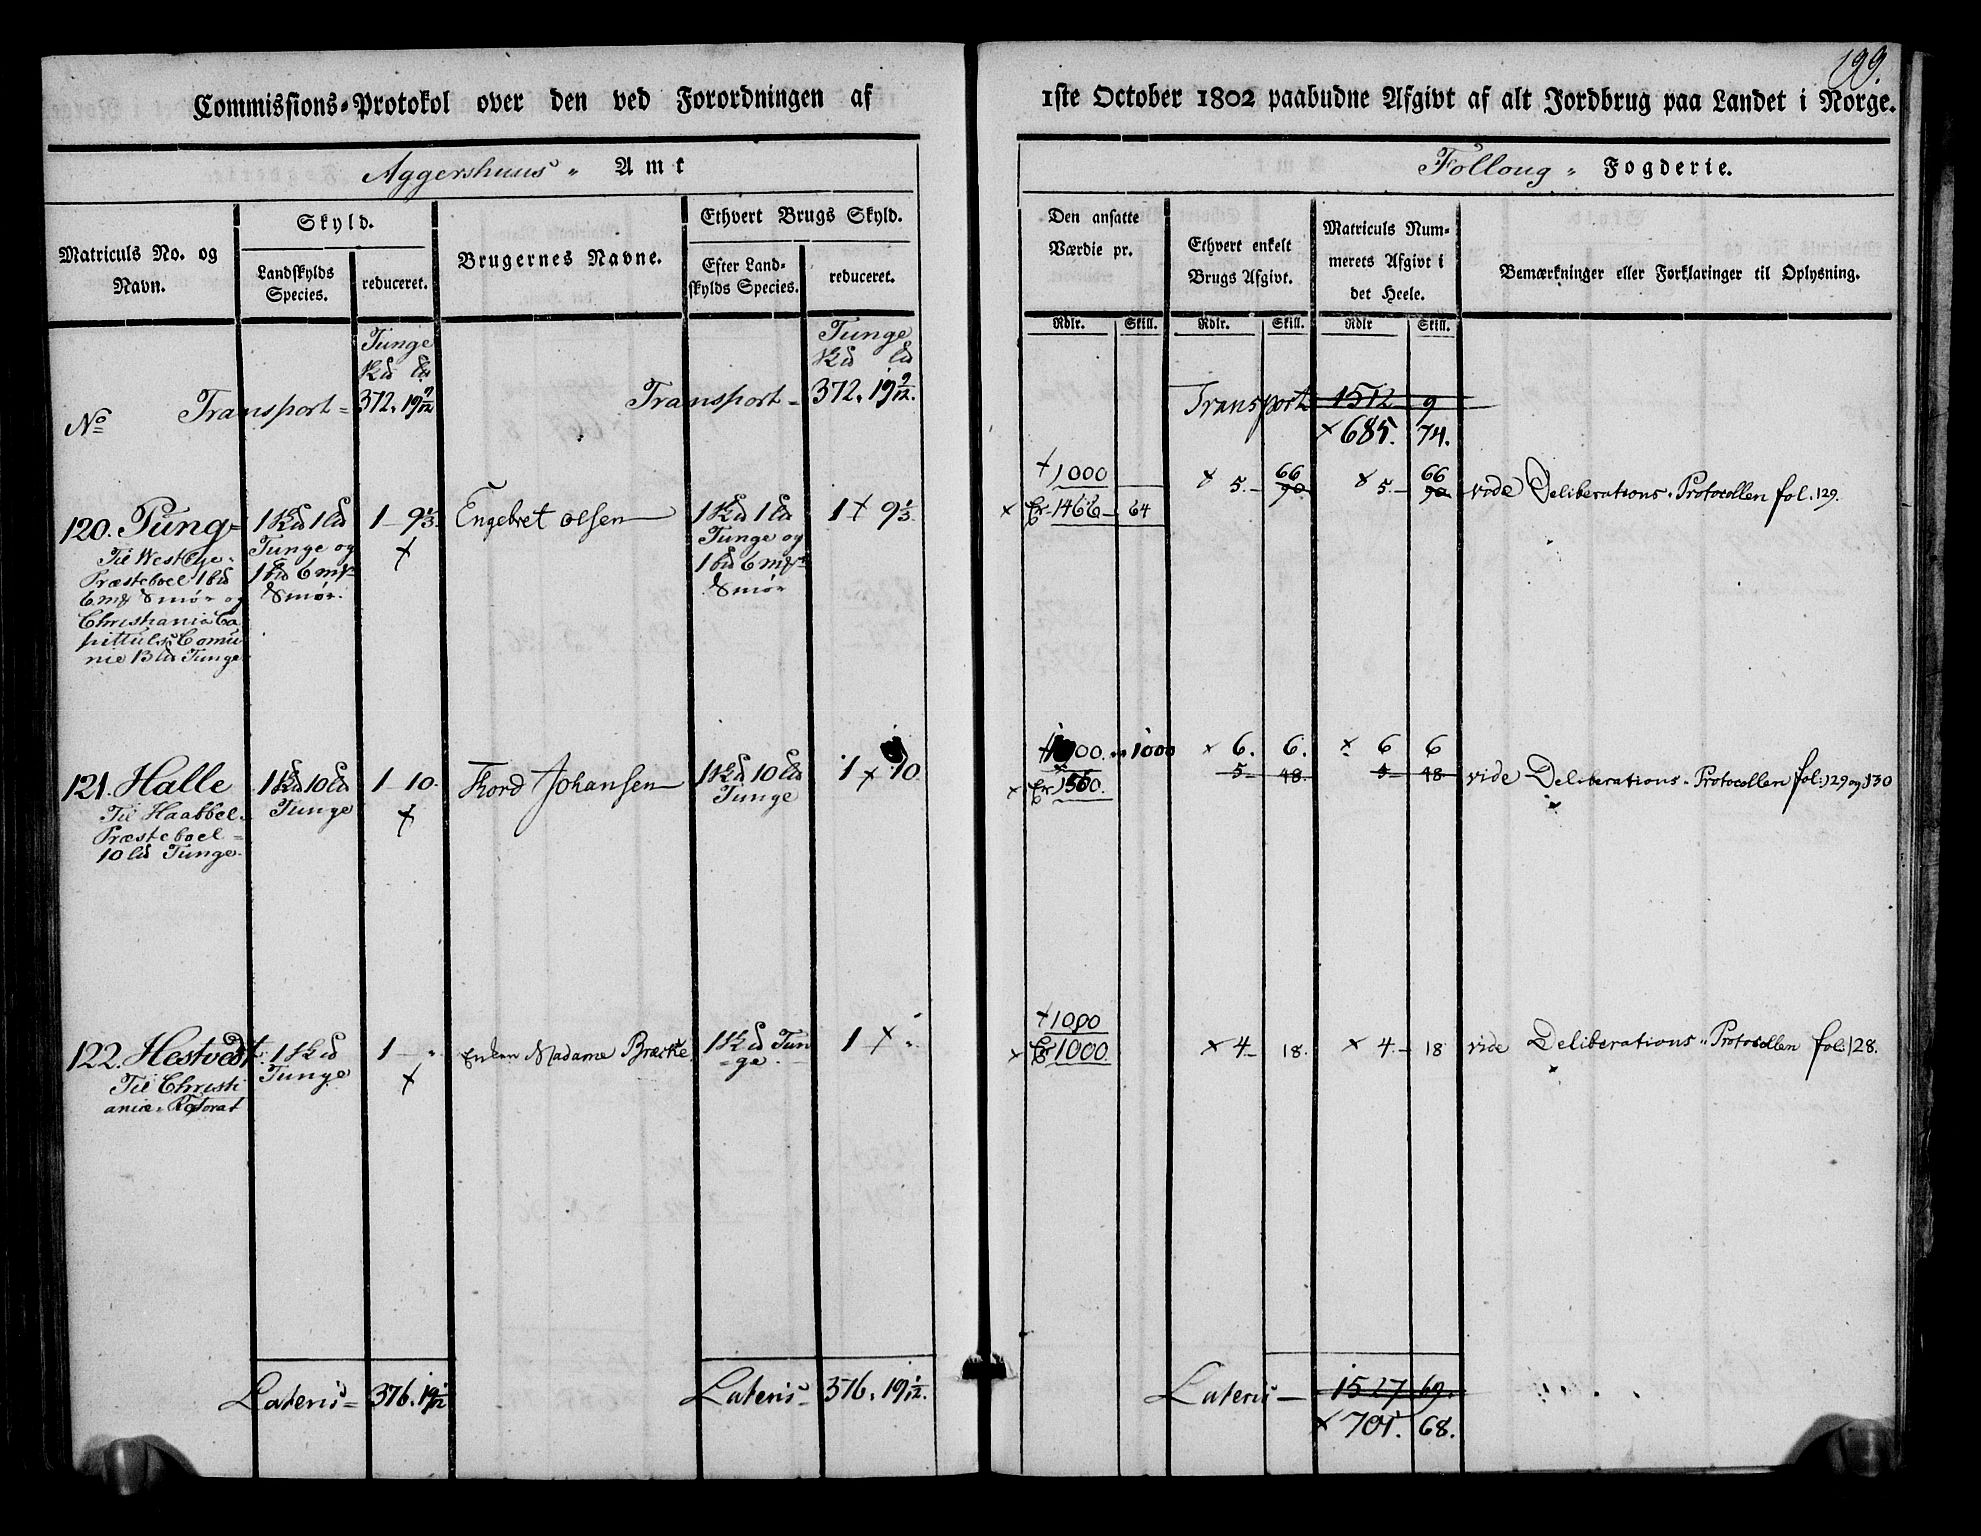 199.
Commissions-Protokol over den ved Forordningen af 1ste October 1802 paabudne Afgivt af alt Jordbrug paa Landet i Norge.
Aggershuus Amt
Folloug Fogderie.
Matriculs No. og Navn.
Skyld.
Landskylds Species.
reduceret.
Brugernes Navne.
Ethvert Brugs Skyld.
Efter Landskylds Species.
reduceret.
Den ansatte Værdie pr.
Rdlr. Skill.
Ethvert enkelt Brugs Afgivt.
Rdlr. Skill.
Matriculs Nummerets Afgivt i det Heele.
Rdlr Skill.
Bemærkninger eller Forklaringer til Oplysning.
Tunge
Tunge
No
Transport = 372. 19 9/12
Transport - 372. 19 9/12.
Transport 1512 9
× 685. 74.
120. Pung =
Til Westbye
Præsteboel 1 bd
6 mk Smør og
Christiania Ca
pittuls Comu
nie 13 ld Tunge
1 Skd 1 ld
Tunge og
1 bd 6 mk
Smør.
1 - 9 1/3
×
Engebret Olsen
1 Skd 1 ld
Tunge og
1 bd 6 mk
Smør
1 × 9 1/3
+ 1000
× Er 1466 - 64
× 5. - 66
90
× 5. - 66
90
vide Deliberations-Protocollen fol: 129.
121. Halle
Til Haabbel
Præsteboel =
10 ld Tunge.
1 Skd 10 ld
Tunge
1 - 10.
×
Tord Johansen
1 Skd 10 ld
Tunge
1 × 10.
1000
× Er 1500.
× 6. 6.
5 - 48.
× 6 6
5 - 48
vide Deliberations-Protocollen fol: 129 og 130
122. Hestvedt.
Til Christi
aniæ Rectorat
1 Skd
Tunge
1 - "
×
Enken Madame Brække
1 Skd Tun
ge.
1 × "
+ 1000
× Er 1000.
× 4 - 18.
× 4. - 18
vide Deliberations-Protocollen fol: 128.
Lateris = 376. 19 1/12
Lateris - 376. 19 1/12.
Lateris - 1527 69.
× 701. 68.